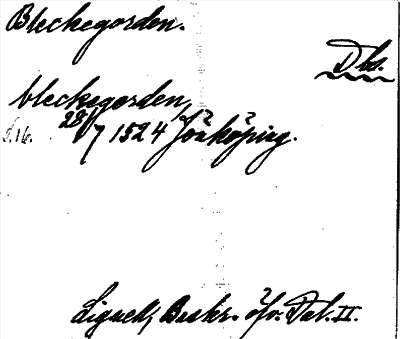 Bleckegorden.
Dbs.
bleckegorden,
s.16. 28/7 1524 Jönköping.
Lignell, Beskr. öfv. Dal. II.